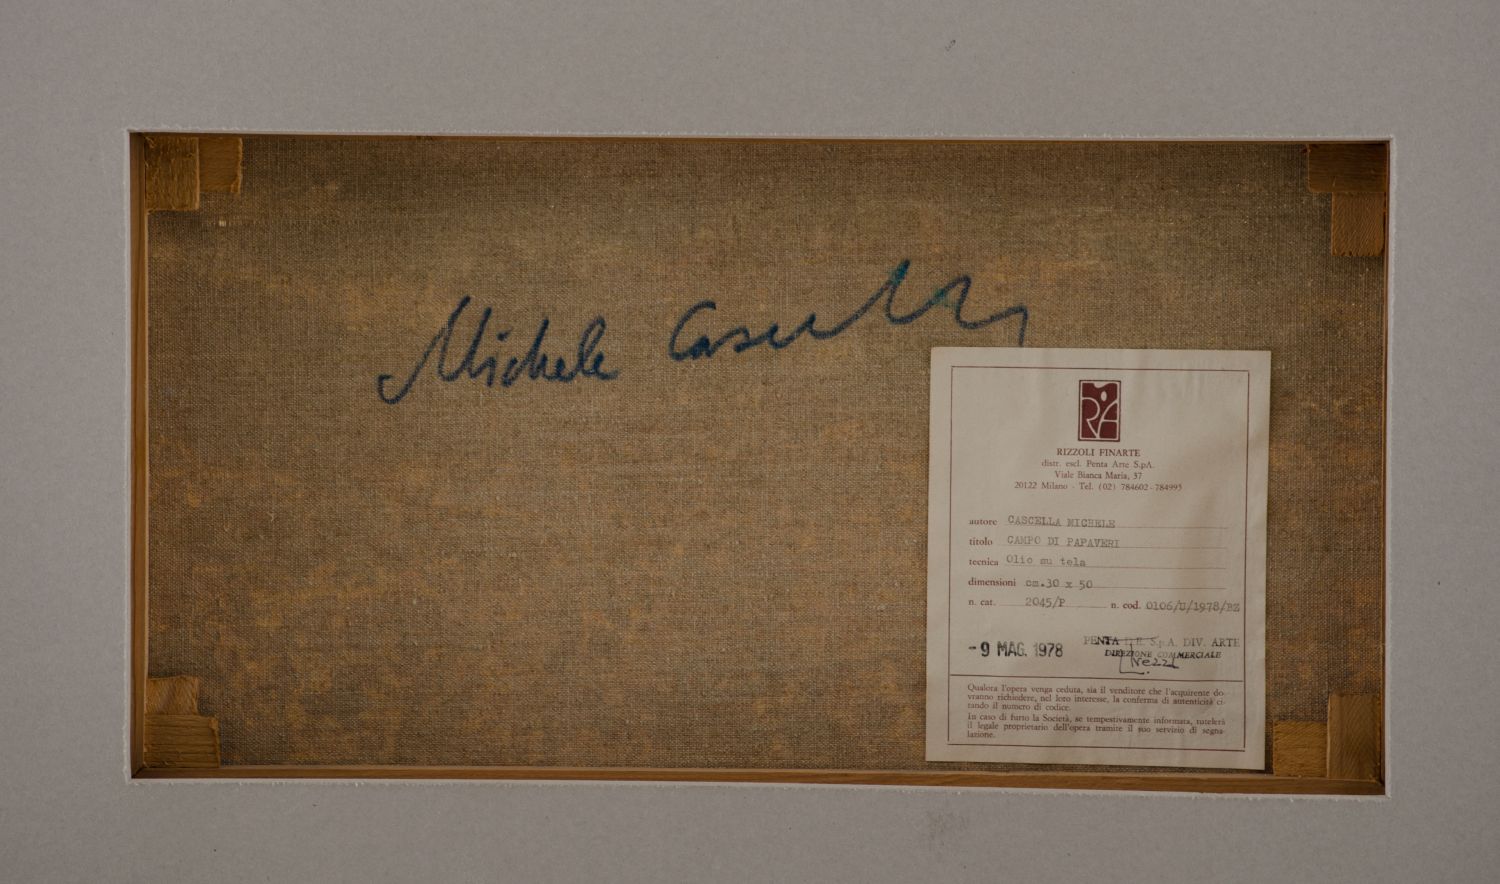 Michele Cascella
RA
RIZZOLI FINARTE
distr. escl. Penta Arte S.p.A.
Viale Bianca Maria, 37
20122 Milano - Tel. (02) 784602-784995
autore CASCELLA MICHELE
titolo CAMPO DI PAPAVERI
tecnica Olio su tela
dimensioni cm.30 x 50
n. cat. 2045/P n. cod. 0106/U/1978/BZ
-9 MAG. 1978 PENTA S.p.A. DIV. ARTE
DIREZIONE COMMERCIALE
Qualora l'opera venga ceduta, sia il venditore che l'acquirente do-
vranno richiedere, nel loro interesse, la conferma di autenticità ci-
tando il numero di codice.
In caso di furto la Società, se tempestivamente informata, tutelerà
il legale proprietario dell'opera tramite il suo servizio di segna-
lazione.